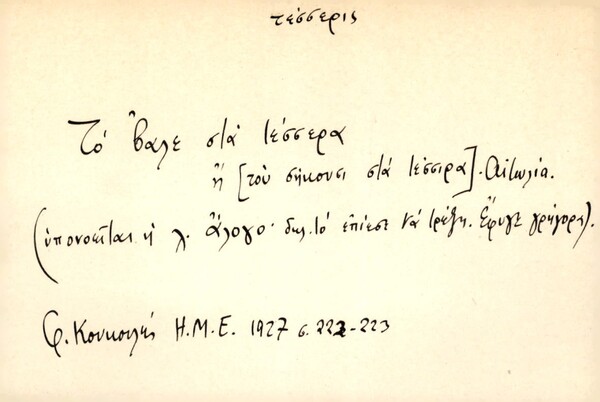 τέσσερις
Τό ἔβαλε στά τέσσερα
ἤ [τοὺ σήκουσι στά τέσσιρα]. Αἰτωλία.
(ὑπονοεῖται ἡ λ. ἄλογο· δηλ. τό ἐπίεσε νά τρέξῃ. Ἔφυγε γρήγορα).
Φ. Κουκουλές Η.Μ.Ε. 1927 σ. 222-223